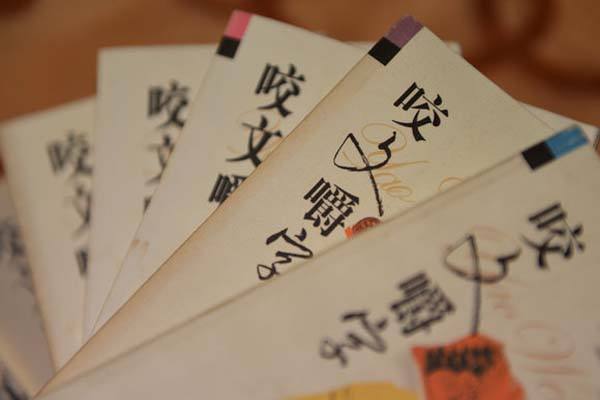 咬文
咬文
咬文嚼
咬文嚼字
咬文嚼字